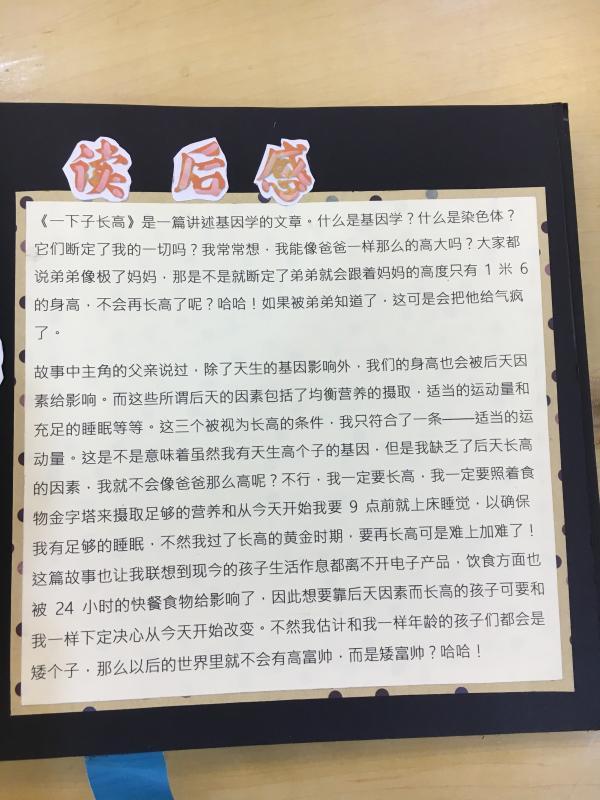 读后感
《一下子长高》是一篇讲述基因学的文章。什么是基因学？什么是染色体？
它们断定了我的一切吗？我常常想，我能像爸爸一样那么的高大吗？大家都
说弟弟像极了妈妈，那是不是就断定了弟弟就会跟着妈妈的高度只有 1 米 6
的身高，不会再长高了呢？哈哈！如果被弟弟知道了，这可是会把他给气疯
了。
故事中主角的父亲说过，除了天生的基因影响外，我们的身高也会被后天因
素给影响。而这些所谓后天的因素包括了均衡营养的摄取，适当的运动量和
充足的睡眠等等。这三个被视为长高的条件，我只符合了一条——适当的运
动量。这是不是意味着虽然我有天生高个子的基因，但是我缺乏了后天长高
的因素，我就不会像爸爸那么高呢？不行，我一定要长高，我一定要照着食
物金字塔来摄取足够的营养和从今天开始我要 9 点前就上床睡觉，以确保
我有足够的睡眠，不然我过了长高的黄金时期，要再长高可是难上加难了！
这篇故事也让我联想到现今的孩子生活作息都离不开电子产品，饮食方面也
被 24 小时的快餐食物给影响了，因此想要靠后天因素而长高的孩子可要和
我一样下定决心从今天开始改变。不然我估计和我一样年龄的孩子们都会是
矮个子，那么以后的世界里就不会有高富帅，而是矮富帅？哈哈！